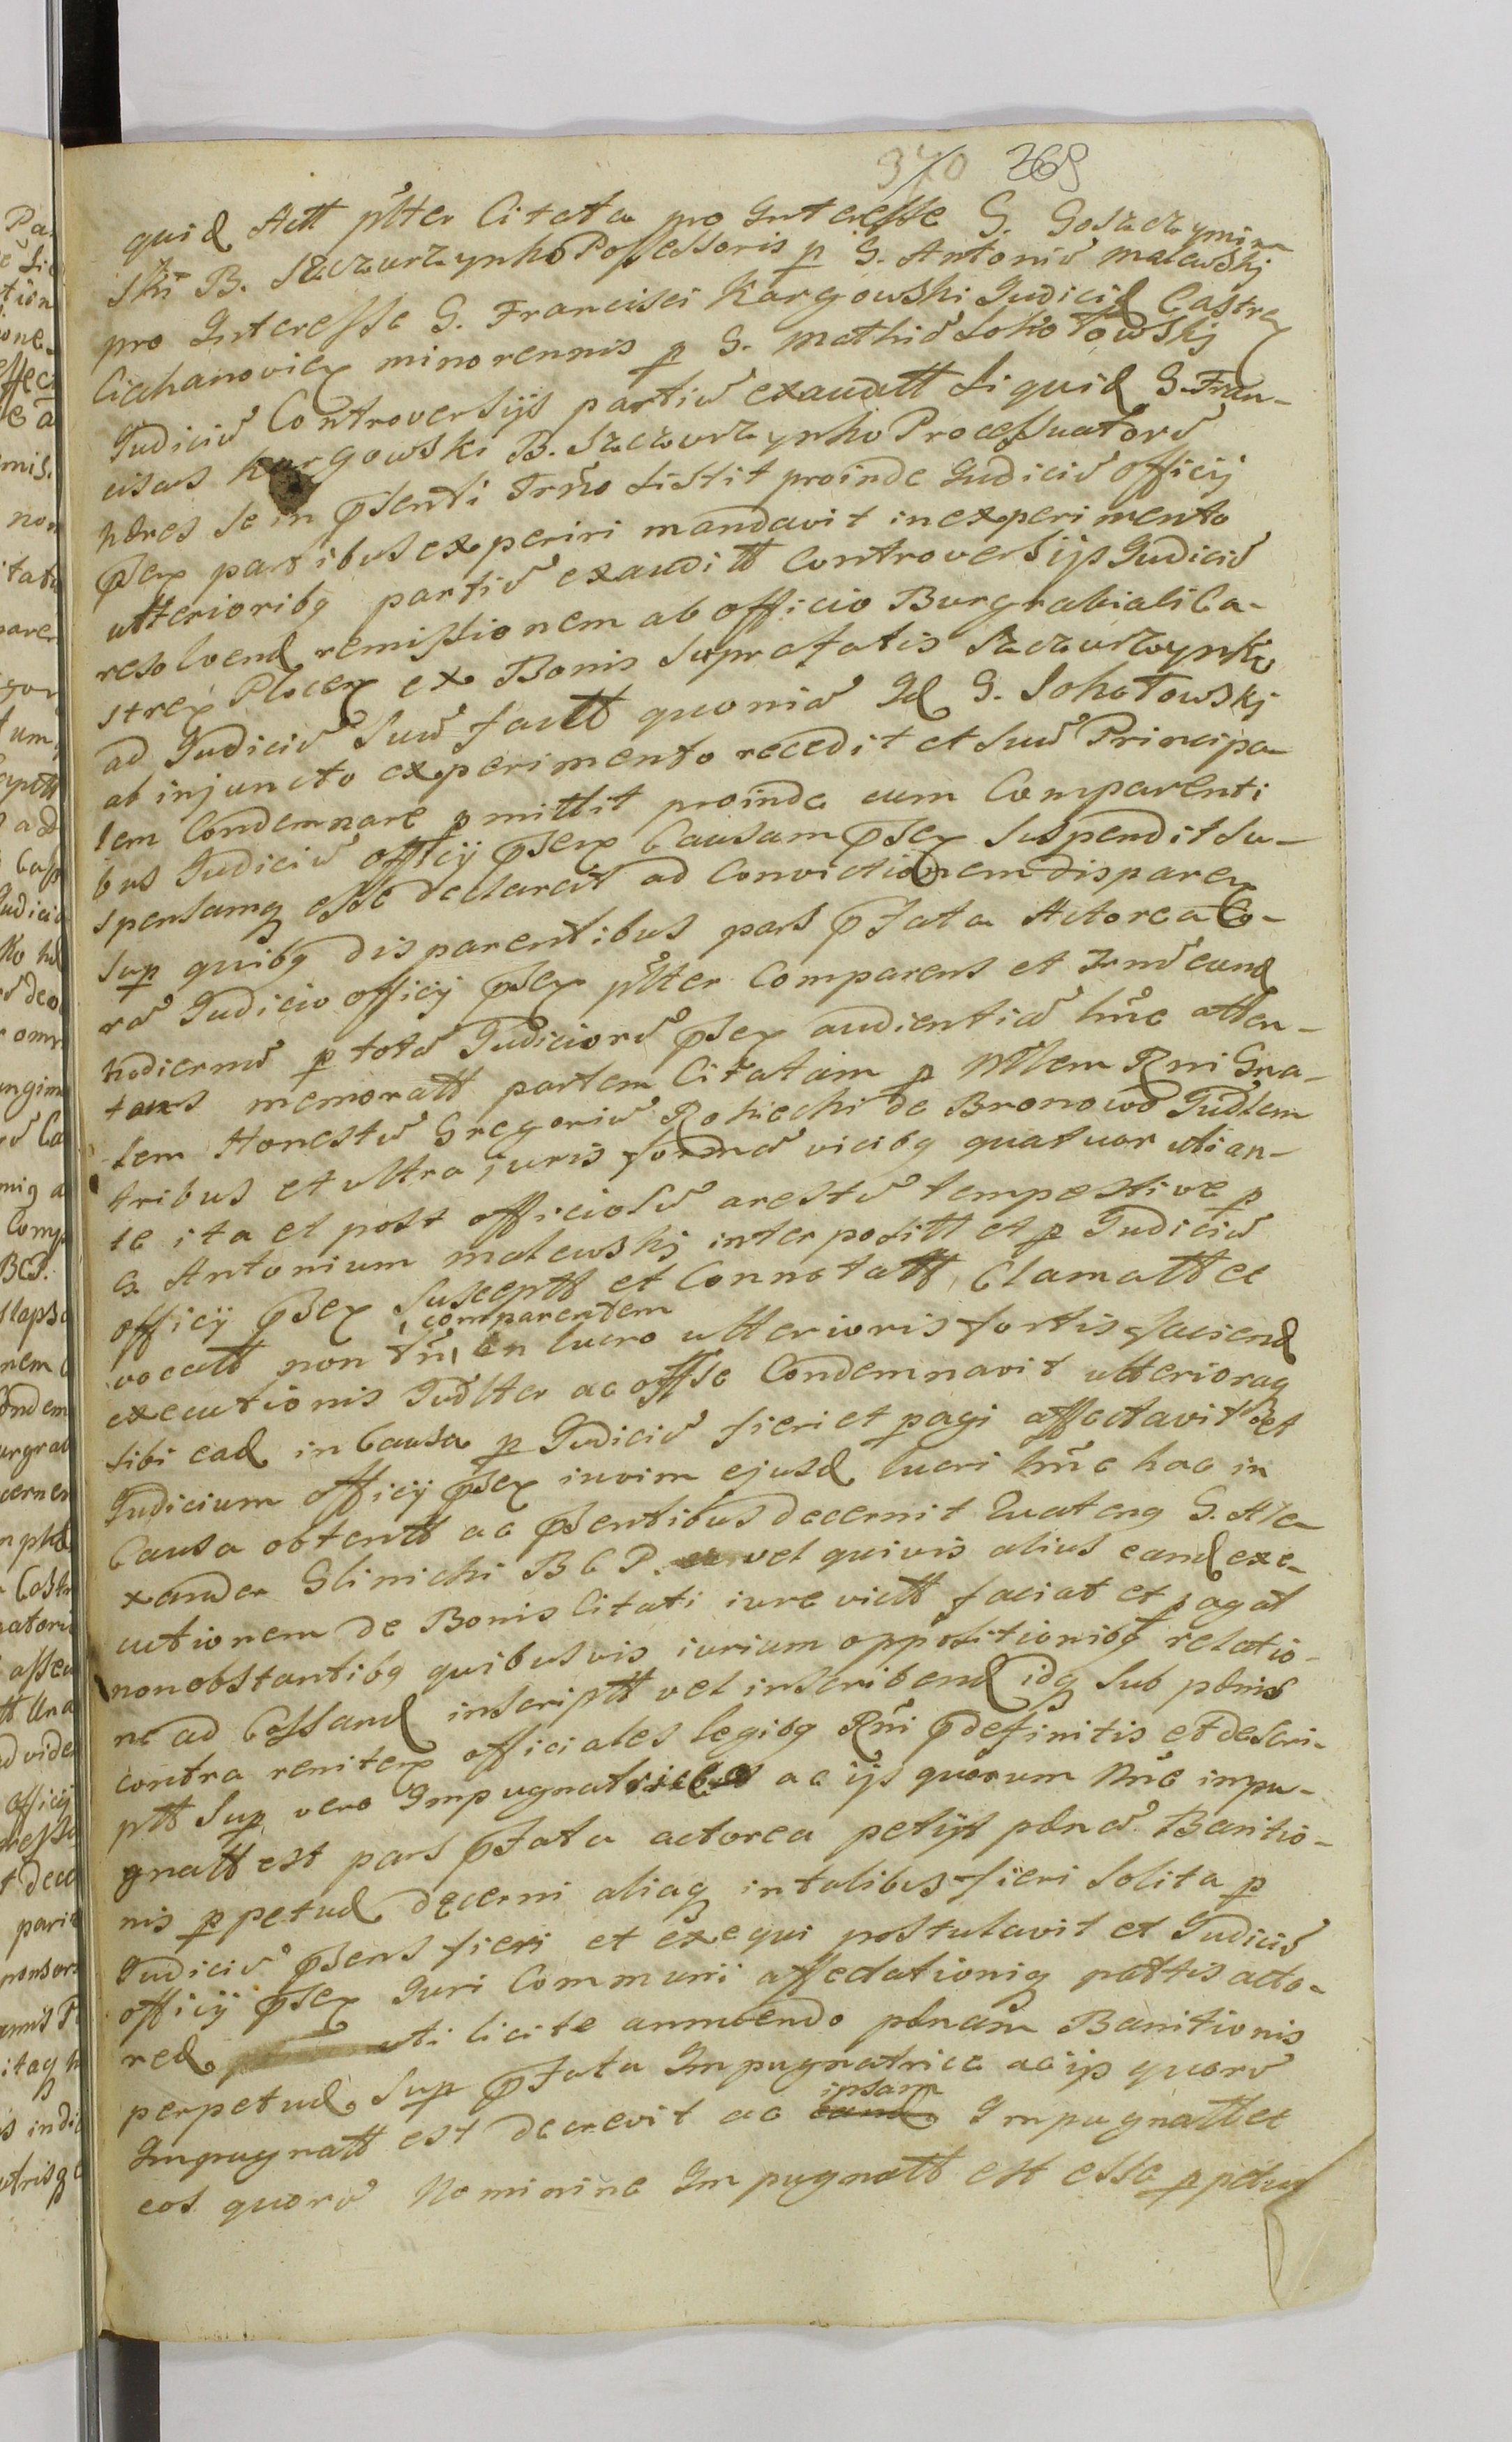 370 269
quid Actt pltter Citata pro Interesse G. Goszczymin
ski B. Szczurzynko Possessoris p G. Antoniu malewskj
pro Interesse G. Francisci Kargowski Judicid Castren
Ciechanovien minorennis p G. Mathiu Sokołowskj
Judiciu Controversijs partiu exauditt Siquid G. Fran-
cisus Kargowski B. Szczurzynko Processuatoru
hæres se in pnsenti Trno sistit proinde Judiciu officij
pnsen partibus experiri mandavit in experimento
ulterioribq partiu exauditt Controversijs Judiciu
resolvend remissionem ab officio Burgrabiali Ca-
stren Plocen ex Bonis supra fatis Szczurzynko
ad Judiciu suu factt quoniu Id G. Sokołowskj
ab injuncto experimento recedit et suu Principa-
lem Condemnare pmittit proinde cum Comparenti
bus Judiciu officij pnsen Causam pnsen suspendit su-
spensamq esse declaravit ad Convictionem disparen
sup quibq disparentibus pars pfata Actorea Co-
ra Judicio officij pnsen pltter Comparens et Trnu eund
hodiernu p totu Judicioru pnsen audientia hne atten-
tans memoratt partem Citatam p Mtlem Rni Gna-
lem Honestu Gregoriu Rokicki de Bronowo Judlem
tribus et ultra juris forma vicibq quatuor utian-
te ita et post officiosu arestu tempestive p
G. Antonium malewskj interpositt et p Judiciu
officij pnsen susceptt et Connotatt, Clamatt ee
vocatt non tn, comparentem in lucro ulterioris fortis faciend
executionis Judltter ac offse Condemnavit ulterioraq
sibi ead in Causa p Judiciu fieri et pagi affectavit et
Judicium officij pnsen in vim ejusd lucri hne hac in
Causa obtentt ac pnsentibus decernit Quatenq G. Ale-
xander Glinicki B C P. vel quivis alius eand exe-
cutionem de Bonis Citati iure victt faciat et pagat
non obstantibq quibusvis iurium oppositionibq relatio-
ne ad Cassand inscriptt vel inscribend idq sub pænis
contra reniten officiales legibq Rni pdefinitis et descri-
ptt Sup vero Impugnatrice ac ijs quorum nne impu-
gnatt est pars pfata actorea petijt pæna Banitio-
nis ppetud decerni aliaq in talibus fieri solita p
Judiciu pnsens fieri et exequi postulavit et Judiciu
officij pnsen Juri Communi affectationiq partis acto-
red uti licite annuendo pænam Banitionis
perpetud. Sup pfata Impugnatrice ac ijs quoru
Impugnatt est decrevit ac eand ipsam Impugnatt ee
eos quoru Nominine Impugnatt est esse ppetuo